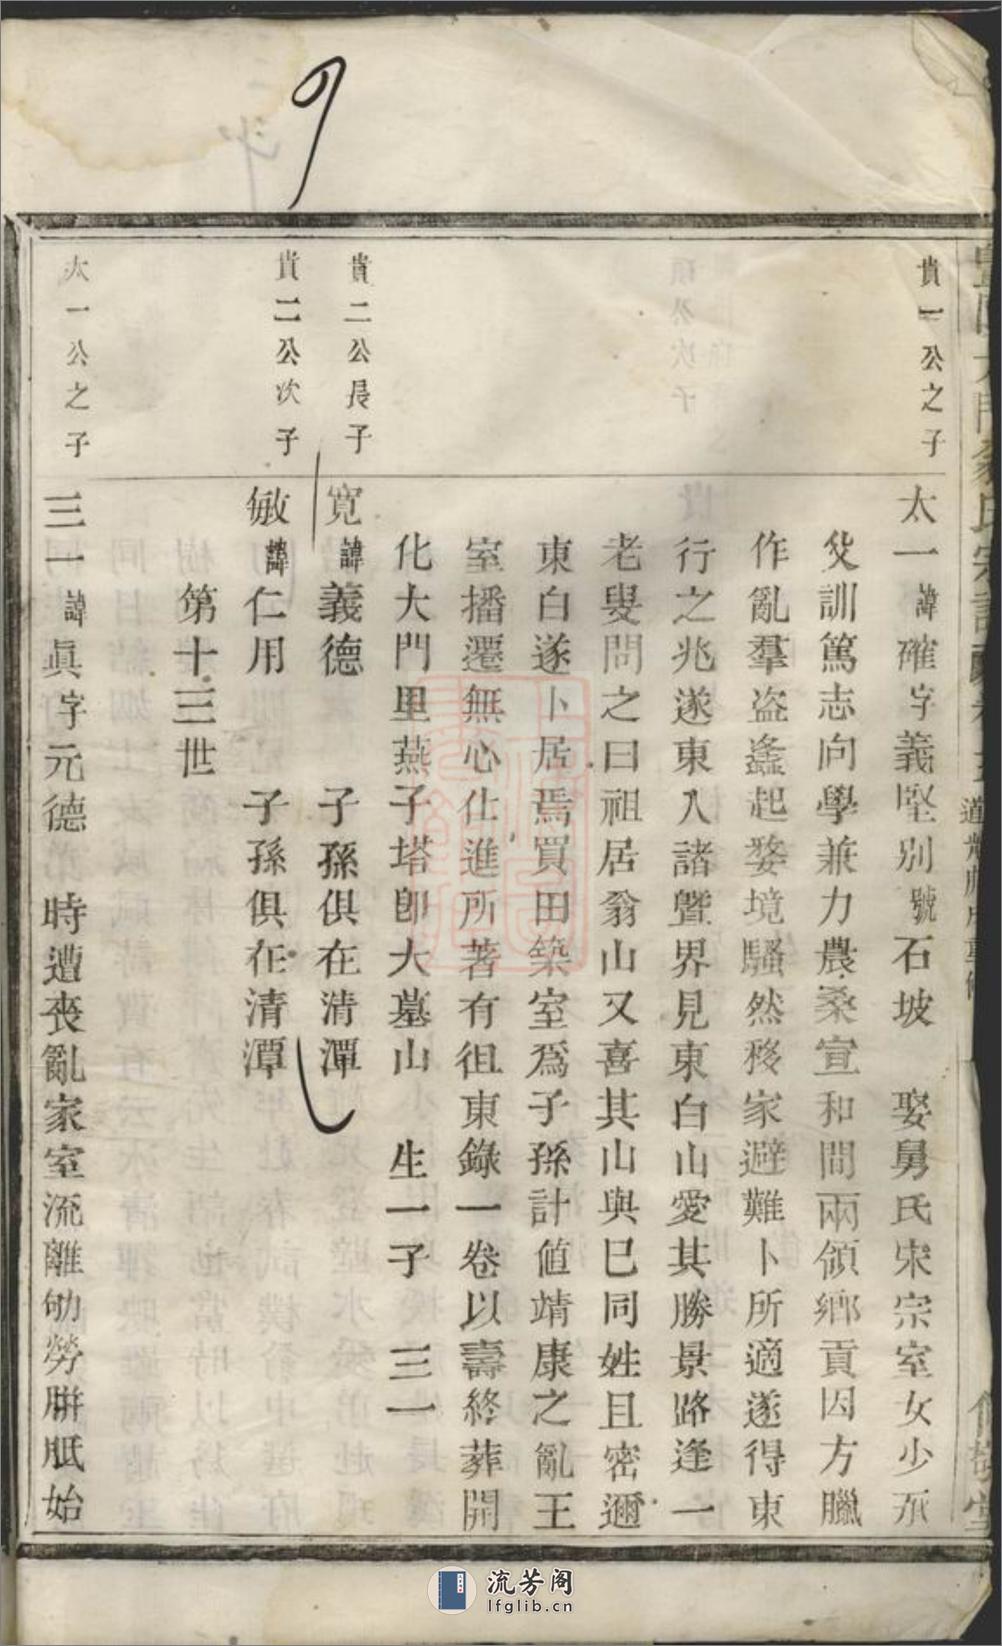 貴一公之子
太一諱確字義堅别號石坡 娶舅氏宋宗室女少承
父訓篤志向學兼力農桑宣和間兩領鄉貢因方臘
作亂羣盗蠭起婺境騷然移家避難卜所適遂得東
行之兆遂東入諸暨界見東白山愛其勝景路逢一
老叟問之曰祖居翁山又喜其山與己同姓且密邇
東白遂卜居焉買田築室爲子孫計値靖康之亂王
室播遷無心仕進所著有徂東錄一卷以壽終葬開
化大門里燕子塔卽大墓山 生一子 三一
貴二公長子
寬諱義德 子孫俱在清潭
貴二公次子
敏諱仁用 子孫俱在清潭
第十三世
太一公之子
三一諱眞字元德 時遭喪亂家室流離劬勞胼胝始
流芳阁
lfglib.cn